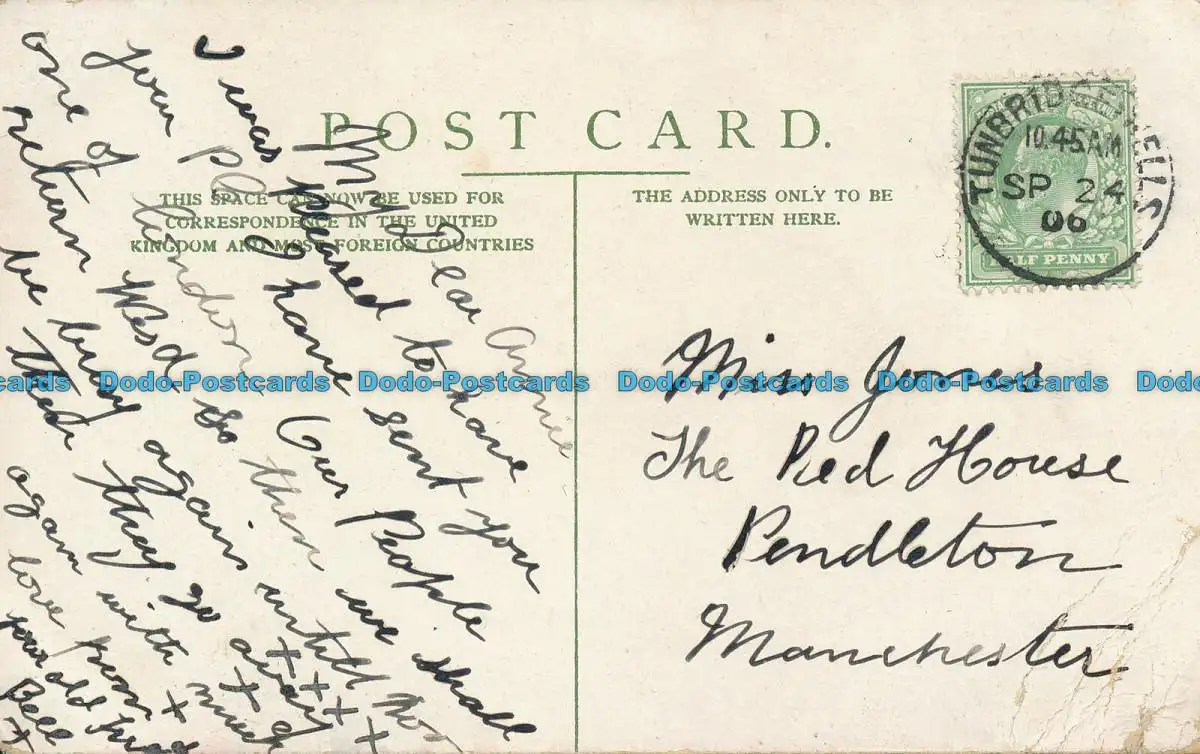 POST CARD.
THIS SPACE CAN NOW BE USED FOR
CORRESPONDENCE IN THE UNITED
KINGDOM AND MOST FOREIGN COUNTRIES
THE ADDRESS ONLY TO BE
WRITTEN HERE.
TUNBRIDGE WELLS
10.45AM
SP 24
06
HALF PENNY
My Dear Annie
I was pleased to have
your PC I have sent you
one of London Our People
return Wesd So then we shall
be busy again untill
then they go away
again with much
love from
your old friend
Bell
Miss Jones
The Red House
Pendleton
Manchester
Dodo-Postcards Dodo-Postcards Dodo-Postcards Dodo-Postcards